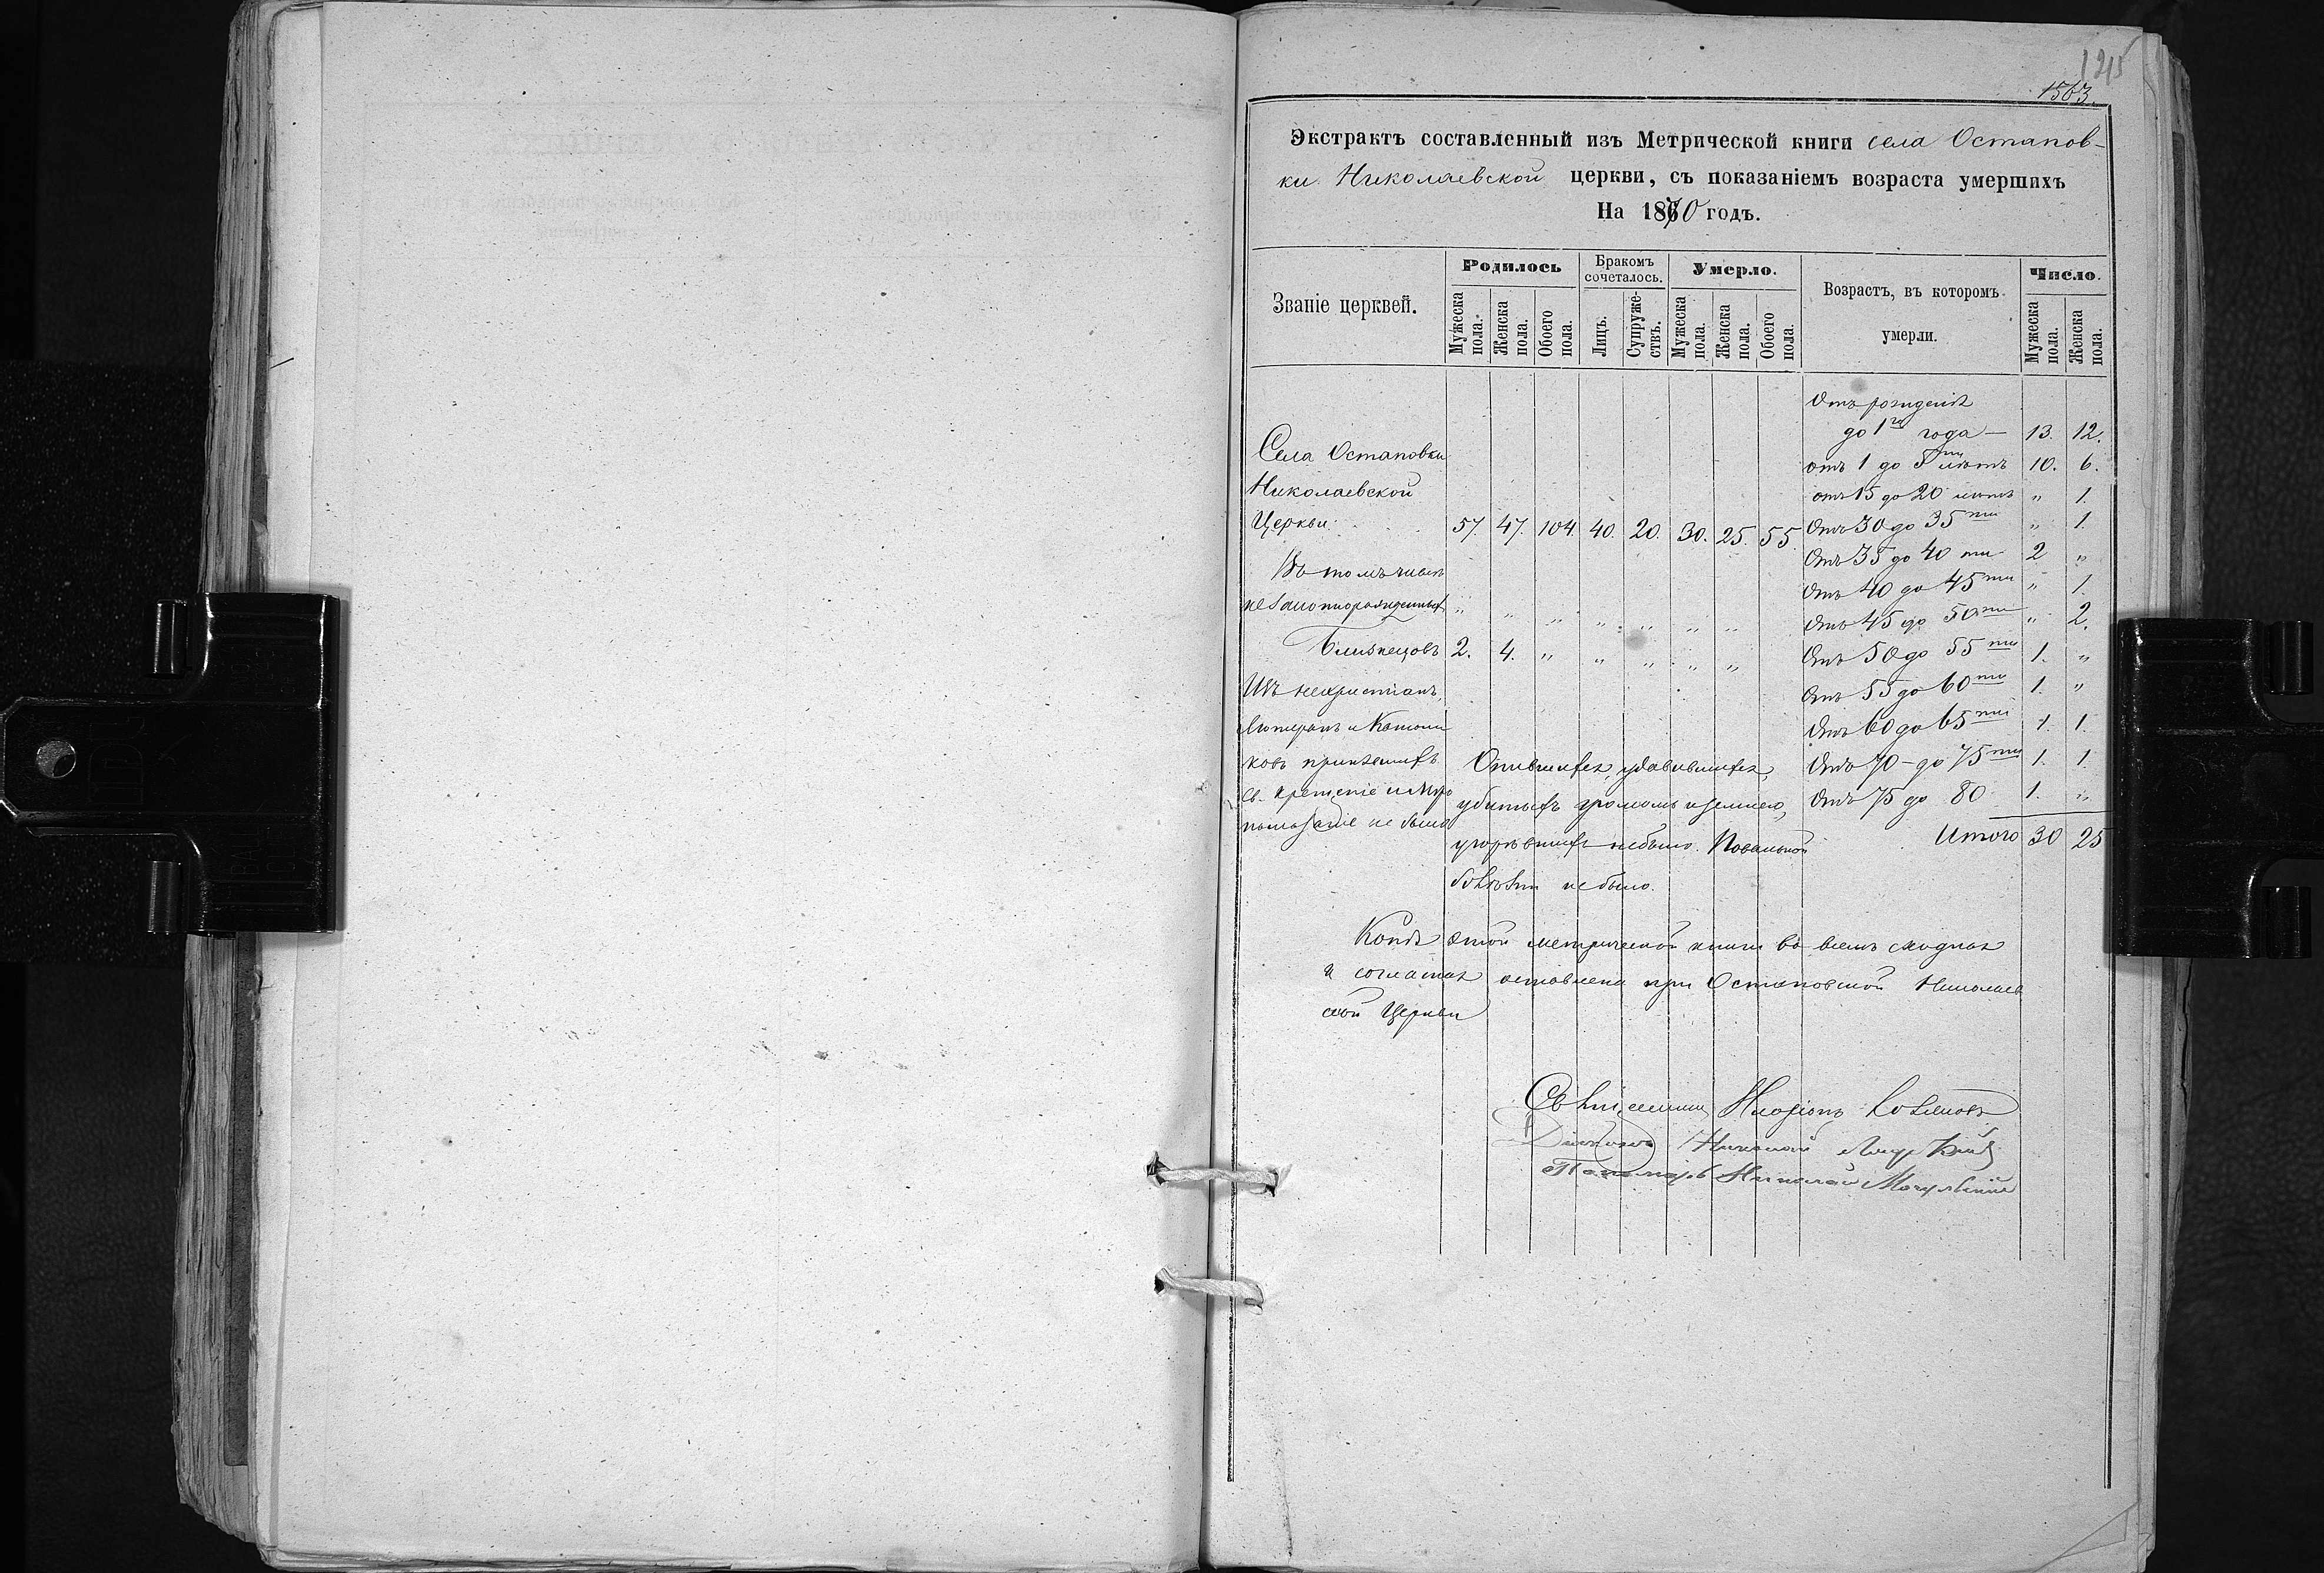 1215
1563.
Экстрактъ составленный изъ Метрической книги села Остапов-
ки Николаевской церкви, съ показаніемъ возраста умершихъ
На 1870 годъ.
Званіе церквей. Родилось Бракомъ сочеталось. Умерло. Возрастъ, въ которомъ умерли. Число.
Мужеска пола. Женска пола. Обоего пола. Лицъ. Супружествъ. Мужеска пола. Женска пола. Обоего пола. Мужеска пола. Женска пола.
Отъ рожденія
до 1го года — 13. 12.
Села Остаповки
отъ 1 до 5ти лѣтъ 10. 6.
Николаевской
отъ 15 до 20 лѣтъ " 1.
Церкви 57. 47. 104. 40. 20. 30. 25. 55. Отъ 30 до 35ти " 1.
Отъ 35 до 40 ти 2 "
Въ томъ числѣ
Отъ 40 до 45ти " 1.
незаконнорожденныхъ " " " " " " "
Отъ 45 до 50ти " 2.
Близнецовъ 2. 4. " " " " "
Отъ 50 до 55ти 1. "
Изъ нехристіанъ,
Отъ 55 до 60ти 1. "
Лютеранъ и Католи
Отъ 60 до 65ти 1. 1.
ковъ принявшихъ
Отъ 70 – до 75ти 1. 1
св. крещеніе и Мѵро
Отъ 75 до 80 1. "
помазаніе не было
Итого 30 25
Опившихся, удавившихся,
убитыхъ громомъ и землею,
угорѣвшихъ небыло. Повальной
болѣзни не было.
Копія этой метрической книги во всемъ сходная
и согласная оставлена при Остаповской Николаев
ской Церкви
Священникъ
Діаконъ Николай
Пономарь Николай